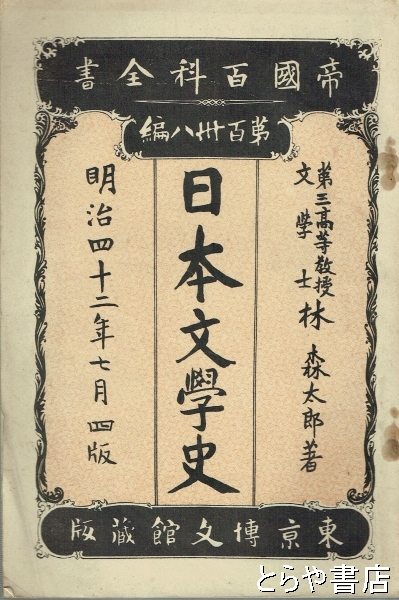 帝國百科全書
第百卅八編
第三高等教授
文學士 林森太郎著
日本文學史
明治四十二年七月四版
東京博文館蔵版
とらや書店